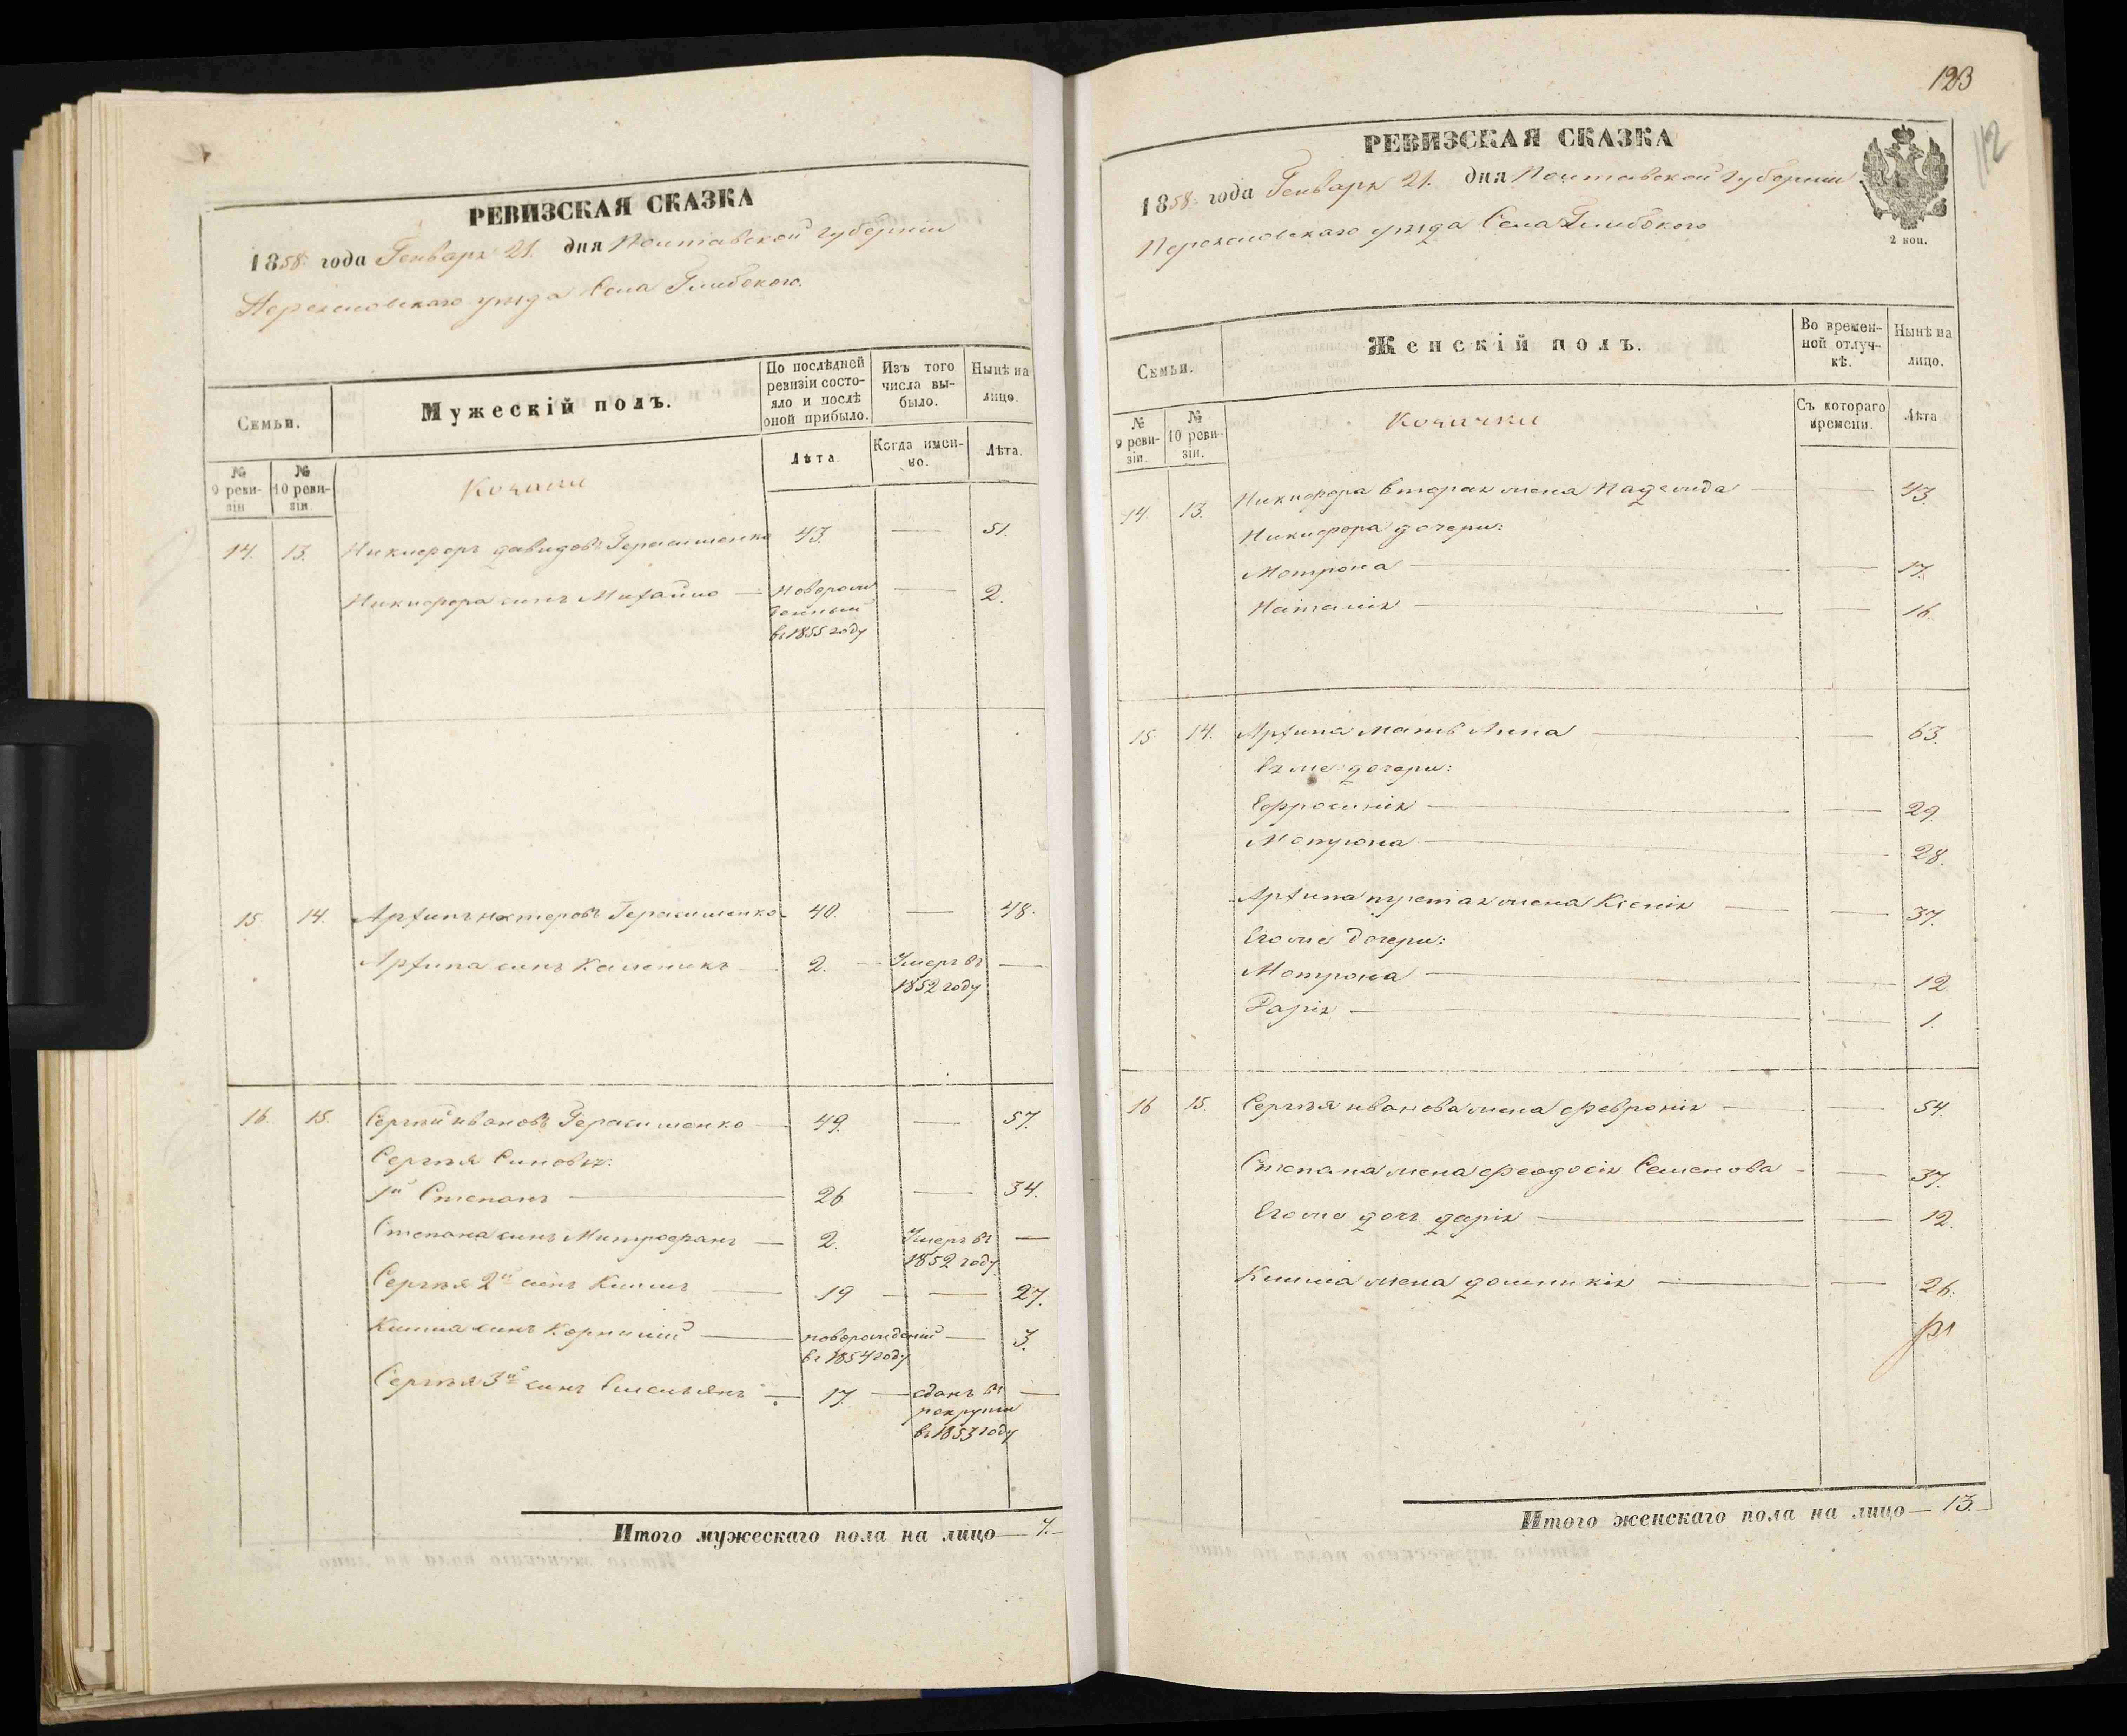 РЕВИЗСКАЯ СКАЗКА
1858 года Генваря 21. дня Полтавской губерніи
уезда Села Глибокого.
Семьи.
Мужескій полъ.
По послѣдней ревизіи состояло и послѣ оной прибыло.
Изъ того числа выбыло.
Нынѣ на лицо.
№ 9 ревизіи
№ 10 ревизіи
Козаки
Лѣта.
Когда именно.
Лѣта.
14. 13. Никифоръ давидовъ Герасименко 43. — 51.
Никифора синъ Михайло — Новорож — 2.
денный
въ 1855 году
15 14. Архипъ нестеровъ Герасименко 40. — 48.
Архипа синъ Калиникъ — 2. — Умеръ въ —
1852 году
16. 15. Сергѣй ивановъ Герасименко — 49. — 57.
Сергѣя Синовья:
1й Степанъ — 26 — 34.
Степана синъ Митрофанъ — 2. Умеръ въ —
1852 году
Сергѣя 2й синъ Климъ — 19 — — 27.
Клима синъ Корнилій — новорожденій — 3.
въ 1854 году
Сергѣя 3й синъ Емельянъ — 17. — сданъ въ —
рекрути
въ 1853 году
Итого мужескаго пола на лицо — 7. —
123
112
РЕВИЗСКАЯ СКАЗКА
1858 года Генваря 21. дня Полтавской Губерніи
уезда Села Глибокого
2 коп.
Семьи.
Женскій полъ.
Во временной отлучкѣ.
Нынѣ на лицо.
№ 9 ревизіи.
№ 10 ревизіи.
Козачки
Съ котораго времени.
Лѣта
14. 13. Никифора вторая жена Надежда — — 43.
Никифора дочери:
Мотрона — — 17.
Наталія — — 16.
15. 14. Архипа мать Анна — — 63.
Ея же дочери:
Ефросинія — — 29.
Мотрона — — 28.
Архипа третая жена Ксенія — — 37.
Его же дочери:
Мотрона — — 12
Дарія — — 1.
16 15. Сергѣя иванова жена февронія — — 54.
Степана жена феодосія Семенова — — 37.
Его же дочь дарія — — 12.
Клима жена домникія — — 26.
Итого женскаго пола на лицо — 13. —